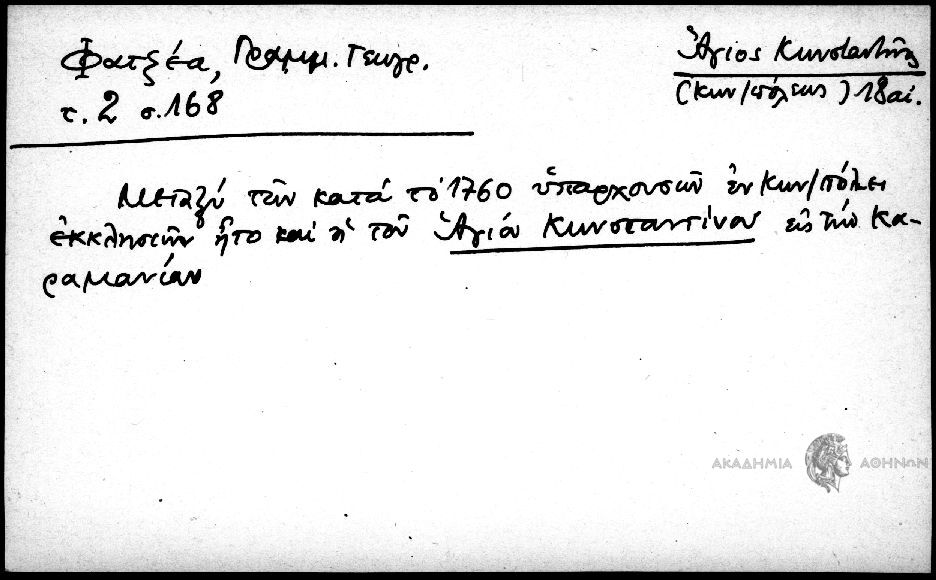 Φατζέα, Γραμμ. Γεωγρ.
τ. 2 σ. 168
Ἅγιος Κωνσταντῖνος
(Κων/πόλεως) 18 αἰ.
Μεταξὺ τῶν κατὰ τὸ 1760 ὑπαρχουσῶν ἐν Κων/πόλει
ἐκκλησιῶν ἦτο καὶ ἡ τοῦ Ἁγίου Κωνσταντίνου εἰς τὴν Κα-
ραμανίαν
ΑΚΑΔΗΜΙΑ ΑΘΗΝΩΝ